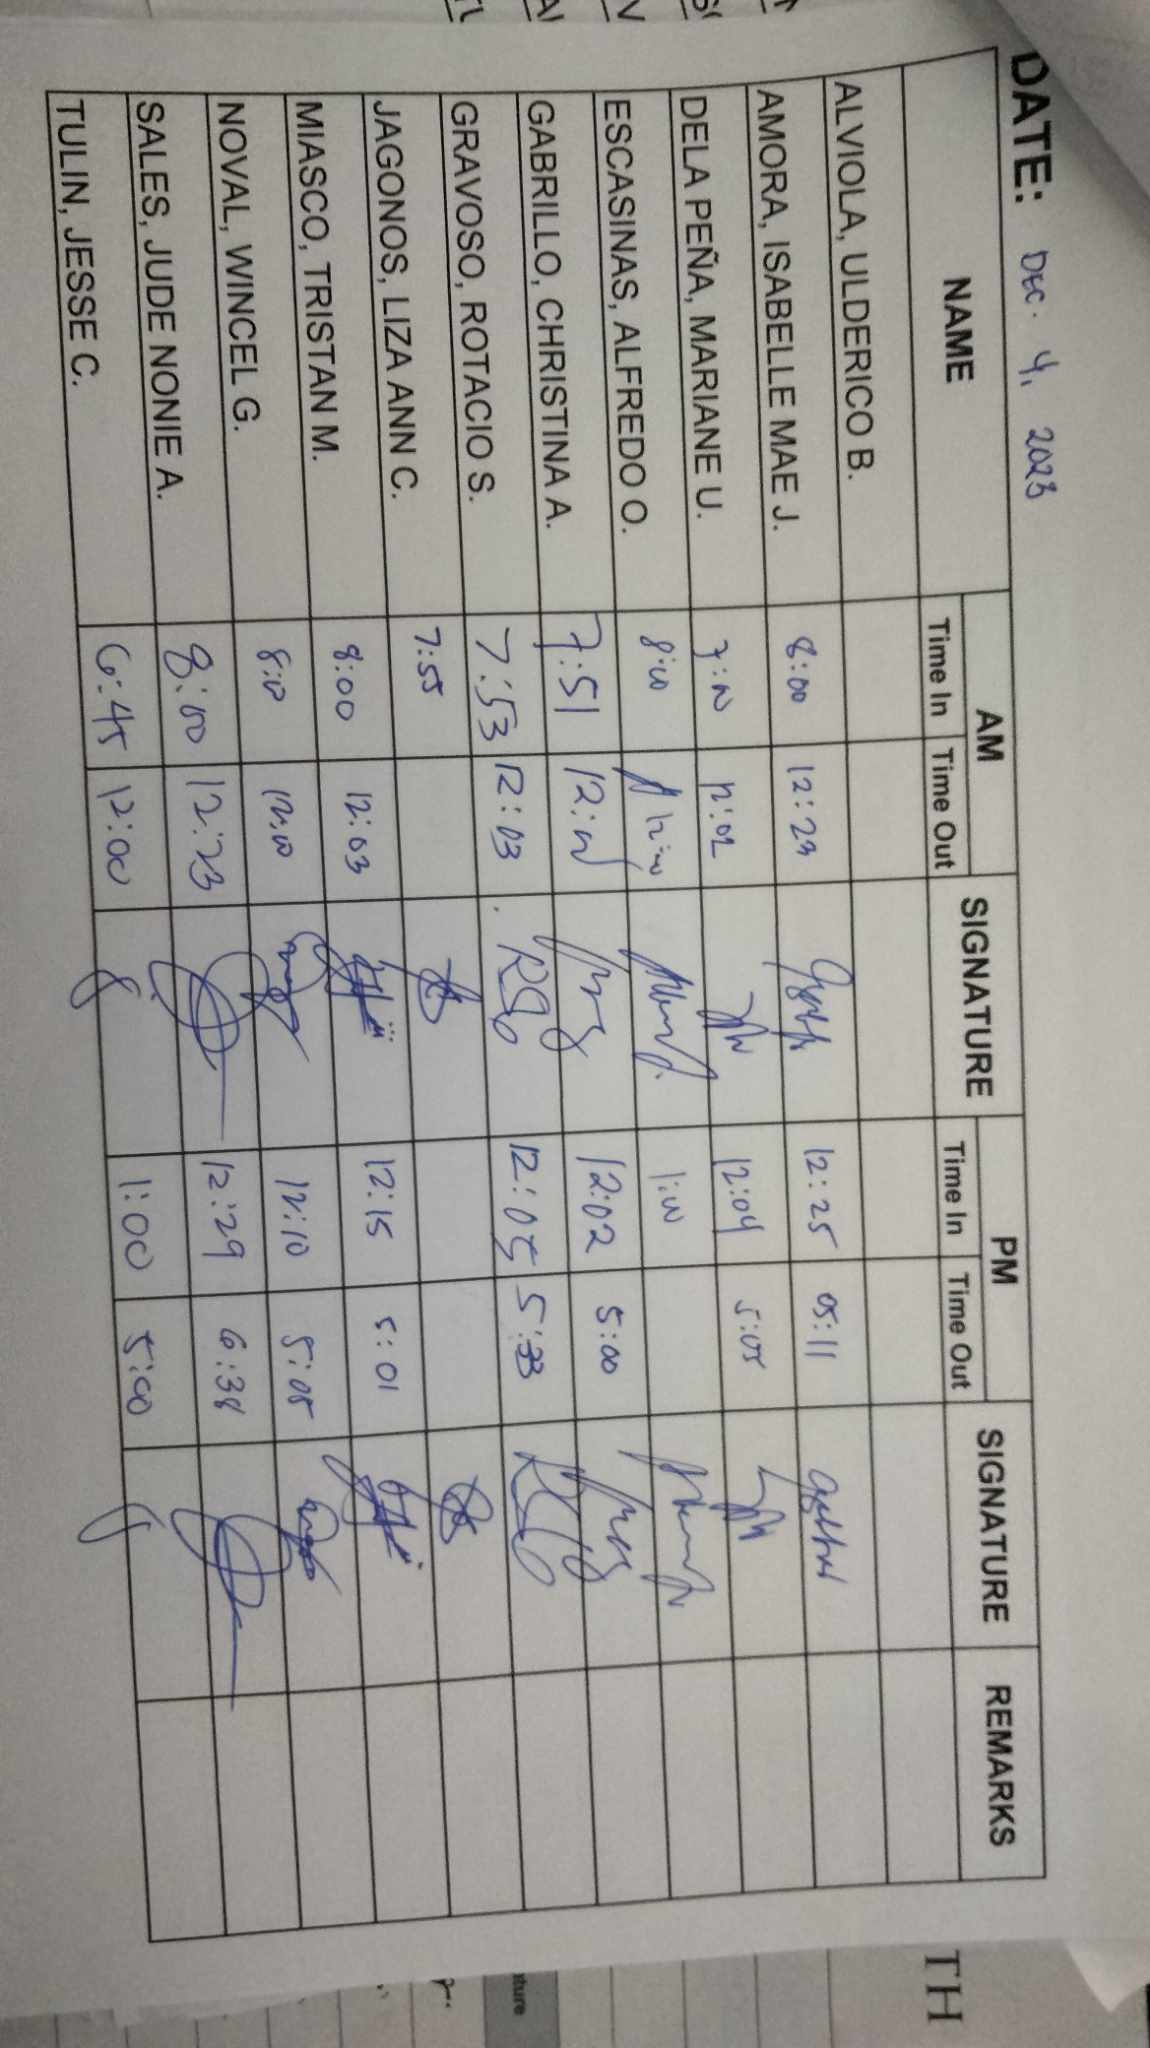 DATE: DEC. 4, 2023
NAME AM SIGNATURE PM SIGNATURE REMARKS
Time In Time Out Time In Time Out
ALVIOLA, ULDERICO B.
AMORA, ISABELLE MAE J. 8:00 12:23 12:25 05:11
DELA PEÑA, MARIANE U. 7:00 12:02 12:04 5:05
ESCASINAS, ALFREDO O. 8:00 12:00 1:00
GABRILLO, CHRISTINA A. 7:51 12:00 12:02 5:00
GRAVOSO, ROTACIO S. 7:53 12:03 12:05 5:33
JAGONOS, LIZA ANN C. 7:55
MIASCO, TRISTAN M. 8:00 12:03 12:15 5:01
NOVAL, WINCEL G. 8:00 12:00 12:10 5:05
SALES, JUDE NONIE A. 8:00 12:23 12:29 6:38
TULIN, JESSE C. 6:45 12:00 1:00 5:00
TH